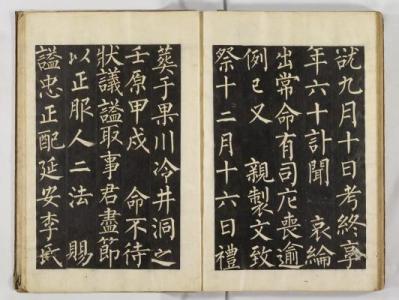 試九月十日考終享
年六十訃聞 哀綸
出常命有司庀喪逾
例已又 親製文致
祭十二月十六日禮
葬于果川冷井洞之
壬原甲戌 命不待
狀議諡取事君盡節
以正服人二法 賜
諡忠正配延安李氏